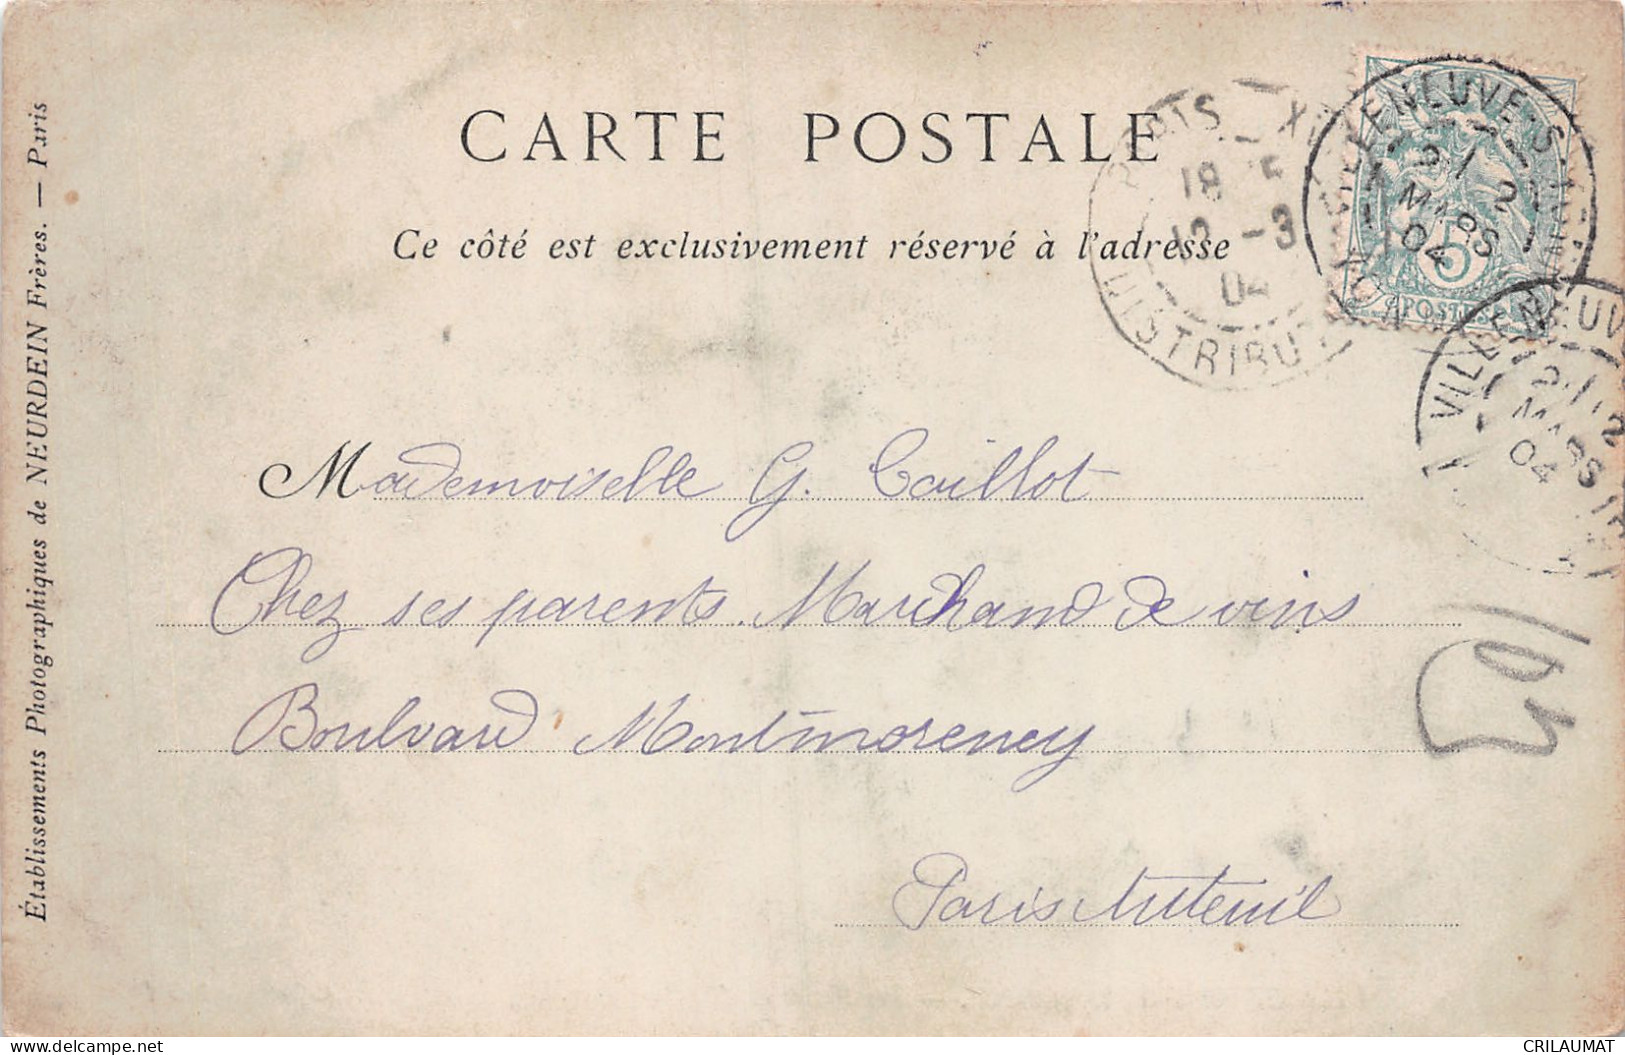 CARTE POSTALE
Ce côté est exclusivement réservé à l'adresse
Établissements Photographiques de NEURDEIN Frères. — Paris
PARIS XVI
18 5
12 -3
04
DISTRIBUT
VILLENEUVE-S
2
MARS
04
5
POSTES
VILLENEUV
2
MARS
04
Mademoiselle G. Caillot
Chez ses parents. Marchand de vins
Boulvard Montmorency
Paris Auteuil
delcampe.net
CRILAUMAT